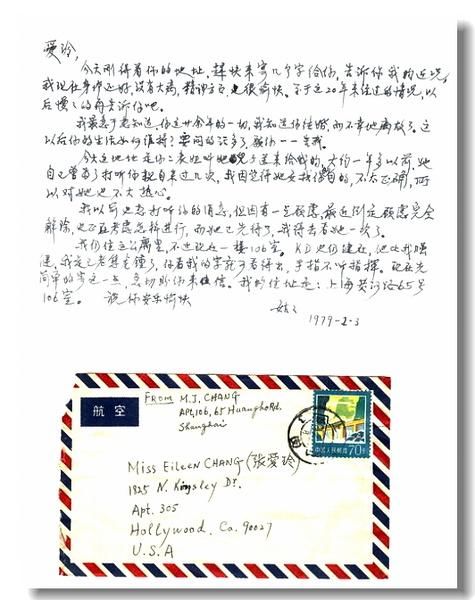 爱玲，
今天刚得着你的地址，赶快来写几个字给你，告诉你我的近况。
我现在身体还好，没有大病，精神方面也很愉快。至于这20年来经过的情况，以
后慢慢的再告诉你吧。
我最急于要知道，你这廿余年的一切，我知道你结婚，而不幸他离放了。这
以后你的生活如何维持？要问的话多了，盼你一一告我。
今天这地址是你二表姐听她
送来给我的，大约一年多以前，她
自己曾为了打听你亲自来过几次，我因觉得她是找
目的，不太正确，所
以对她也不太热心。
我以前也想打听你的消息，但因有一点顾虑，最近倒是顾虑完全
解除，也正在考虑怎样进行，而她已先得了，我得去看她一次了。
我们住这公寓里，不过现在一楼106室。K.D.也仍健在，他比我强
健，我是已老态龙钟了，你看我的字就可看得出，手指不听指挥。现在先
简单的写这一点，急切盼你来信。我的住址是：上海黄河路65号
106室。 祝你安乐愉快
姑姑
1979-2-3
航空
FROM M.J. CHANG
Apt, 106, 65 Huangho Rd.
Shanghai
中国人民邮政 70分
Miss Eileen CHANG (张爱玲)
1825 N. Kingsley Dr.
Apt. 305
Hollywood, Ca. 90027
U.S.A